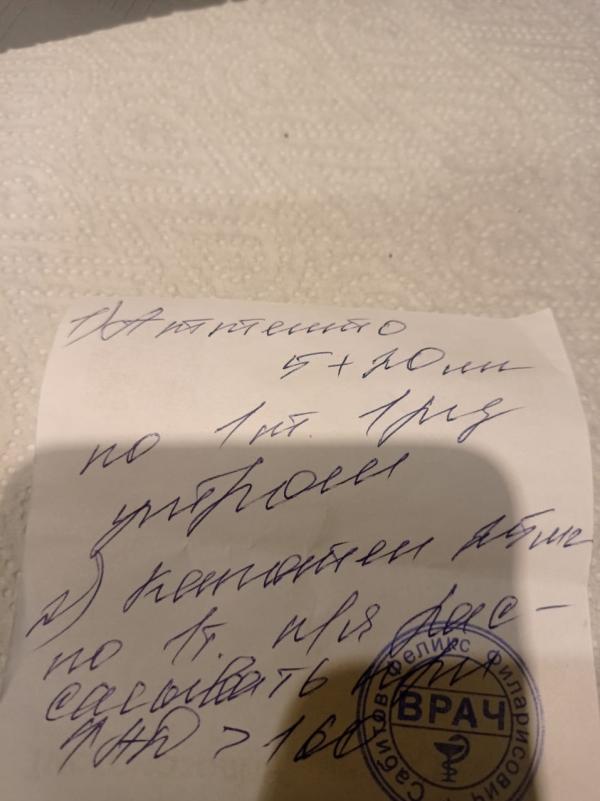 1) Аттенто
5 + 20 мг
по 1 т. 1 р/д
утром
2) Капотен 25 мг
по 1т. п/я рас-
сасывать при
↑АД > 160
Сабитов Феликс Филарисович
ВРАЧ